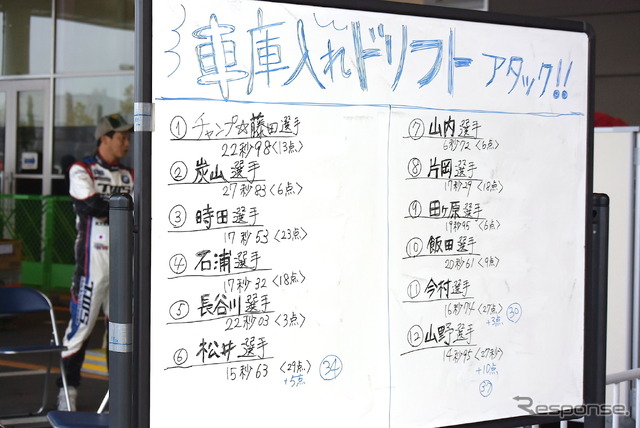 車庫入れドリフト アタック!!
① チャンプ☆藤田選手
22秒98〈13点〉
② 炭山選手
27秒83〈6点〉
③ 時田選手
17秒53〈23点〉
④ 石浦選手
17秒32〈18点〉
⑤ 長谷川選手
22秒03〈3点〉
⑥ 松井選手
15秒63〈29点〉
+5点
34
⑦ 山内選手
6秒72〈6点〉
⑧ 片岡選手
17秒29〈18点〉
⑨ 田ヶ原選手
19秒95〈6点〉
⑩ 飯田選手
20秒61〈9点〉
⑪ 今村選手
16秒74〈27点〉
+3点
30
⑫ 山野選手
14秒95〈27秒〉
+10点
37
Response.